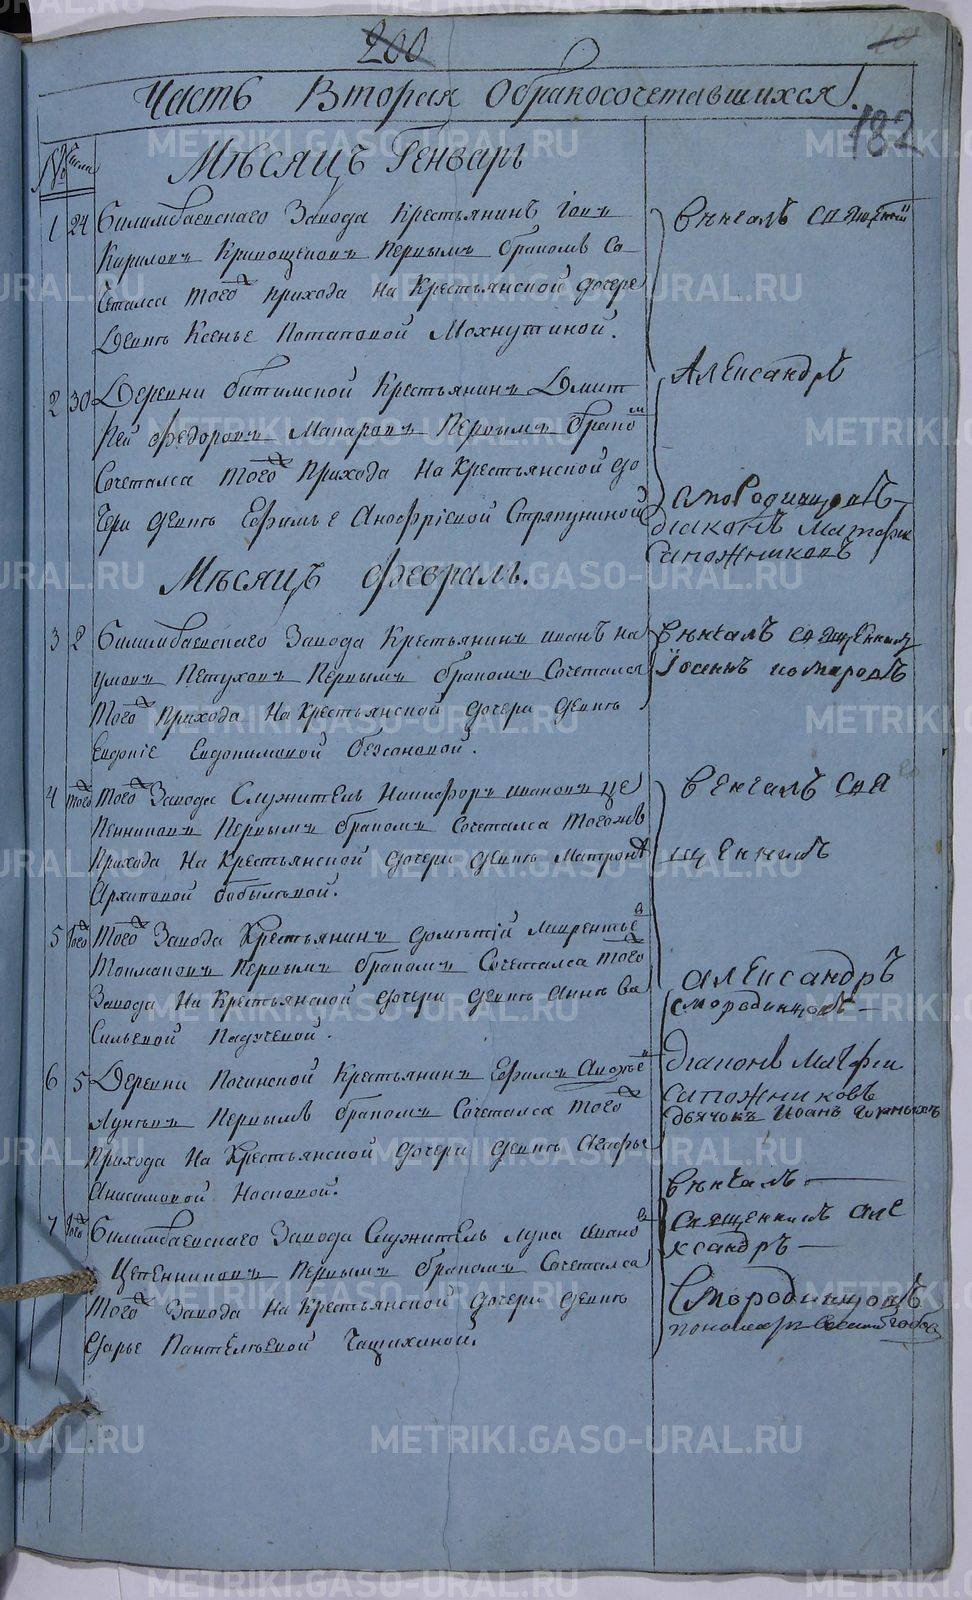 200
Часть Вторая Обракосочетавшихся.
182
№ число
Мѣсяцъ Генварь
1 24 Билимбаевскаго Завода Крестьянинъ Iовъ
Кириловъ Кривощековъ Первымъ бракомъ Со
четался того прихода на Крестьянской дочере
Девкѣ Ксенье Потаповой Мохнуткиной.
2 30 Деревни битимской Крестьянинъ Дмит
рей Федоровъ Макаровъ Первымъ бракомъ
Сочетался того Прихода на Крестьянской до
чери девкѣ Ефимье Анофрiевой Стряпуниной
вѣнчалъ священий
Александръ
Смородинцовъ
дiаконъ Матфей
Сапожниковъ
Мѣсяцъ Февраль.
3 2 Билимбаевскаго Завода Крестьянинъ иванъ на
умовъ Петуховъ Первымъ бракомъ Сочетался
того Прихода на Крестьянской дочери девкѣ
Евдокiе Евдокимовой Безсоновой.
вѣнчалъ священникъ
Iосифъ
4 того того Завода Служитель Никифоръ ивановъ Це
пенниковъ Первымъ бракомъ Сочетался тогожъ
прихода на Крестьянской дочери девкѣ Матронѣ
Архиповой бобылевой.
5 того того Завода Крестьянинъ дометiй Лаврентьевъ
Токмаковъ Первымъ бракомъ Сочетался того
Завода на Крестьянской дочери девкѣ Аннѣ Ва
сильевой Падучевой.
венчалъ Свя
щенникъ
александръ
Смородинцовъ
6 5 Деревни Починской Крестьянинъ Ефимъ
Первымъ бракомъ Сочетался того
Прихода на Крестьянской дочери девкѣ Агафье
Анисимовой Носковой.
дiаконъ Матфей
сапожниковъ
дьячокъ Иоанъ
7 того Билимбаевскаго Завода Служитель Лука ивановъ
Цепенниковъ Первымъ бракомъ Сочетался
того Завода на Крестьянской дочери девкѣ
Дарье Пантелѣевой Чащихиной.
вѣнчалъ
священникъ але
ксандръ
Смородинцовъ
пономарь